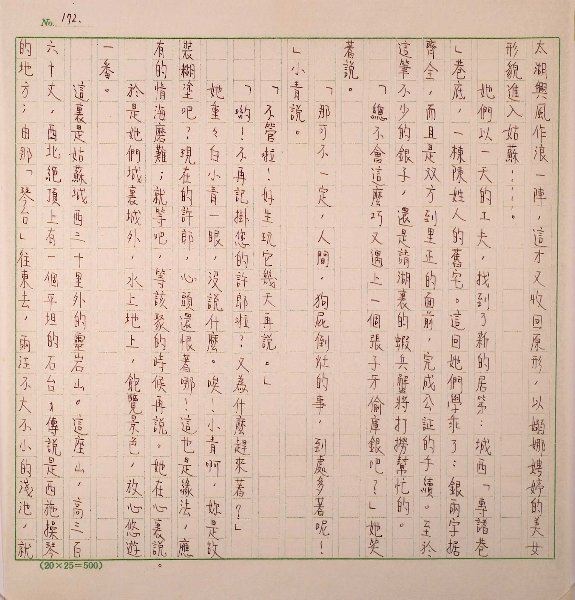 No. 172.
太湖興風作浪一陣，這才又收回原形，以婀娜娉婷的美女
形貌進入姑蘇！！！。
她們以一天的工夫，找到了新的居第：城西「專諸巷
」巷底，一棟陳姓人的舊宅。這回她們學乖了：銀兩字据
齊全，而且是双方到里正的面前，完成公証的手續。至於
這筆不少的銀子，還是請湖裏的蝦兵蟹將打撈幫忙的。
「總不會這麼巧又遇上一個張子牙偷庫銀吧？」她笑
著說。
「那可不一定，人間，狗屁倒灶的事，到處多著呢！
」小青說。
「不管啦！好生玩它幾天再說。」
「喲！不再記掛您的許郎啦？又為什麼趕來著？」
她重々白小青一眼，沒說什麼。唉！小青啊，妳是故
裝糊塗吧？現在的許郎，心頭還恨著哪！這也是緣法，應
有的情海磨難；就等吧，等該聚的時候再說。她在心裏說。
於是她們城裏城外，水上地上，飽覽景色，放心悠遊
一番。
這裏是姑蘇城西三十里外的靈岩山。這座山，高三百
六十丈，西北絕頂上有一個平坦的石台，傳說是西施操琴
的地方；由那「琴台」往東去，兩汪不大不小的淺池，就
(20×25=500)